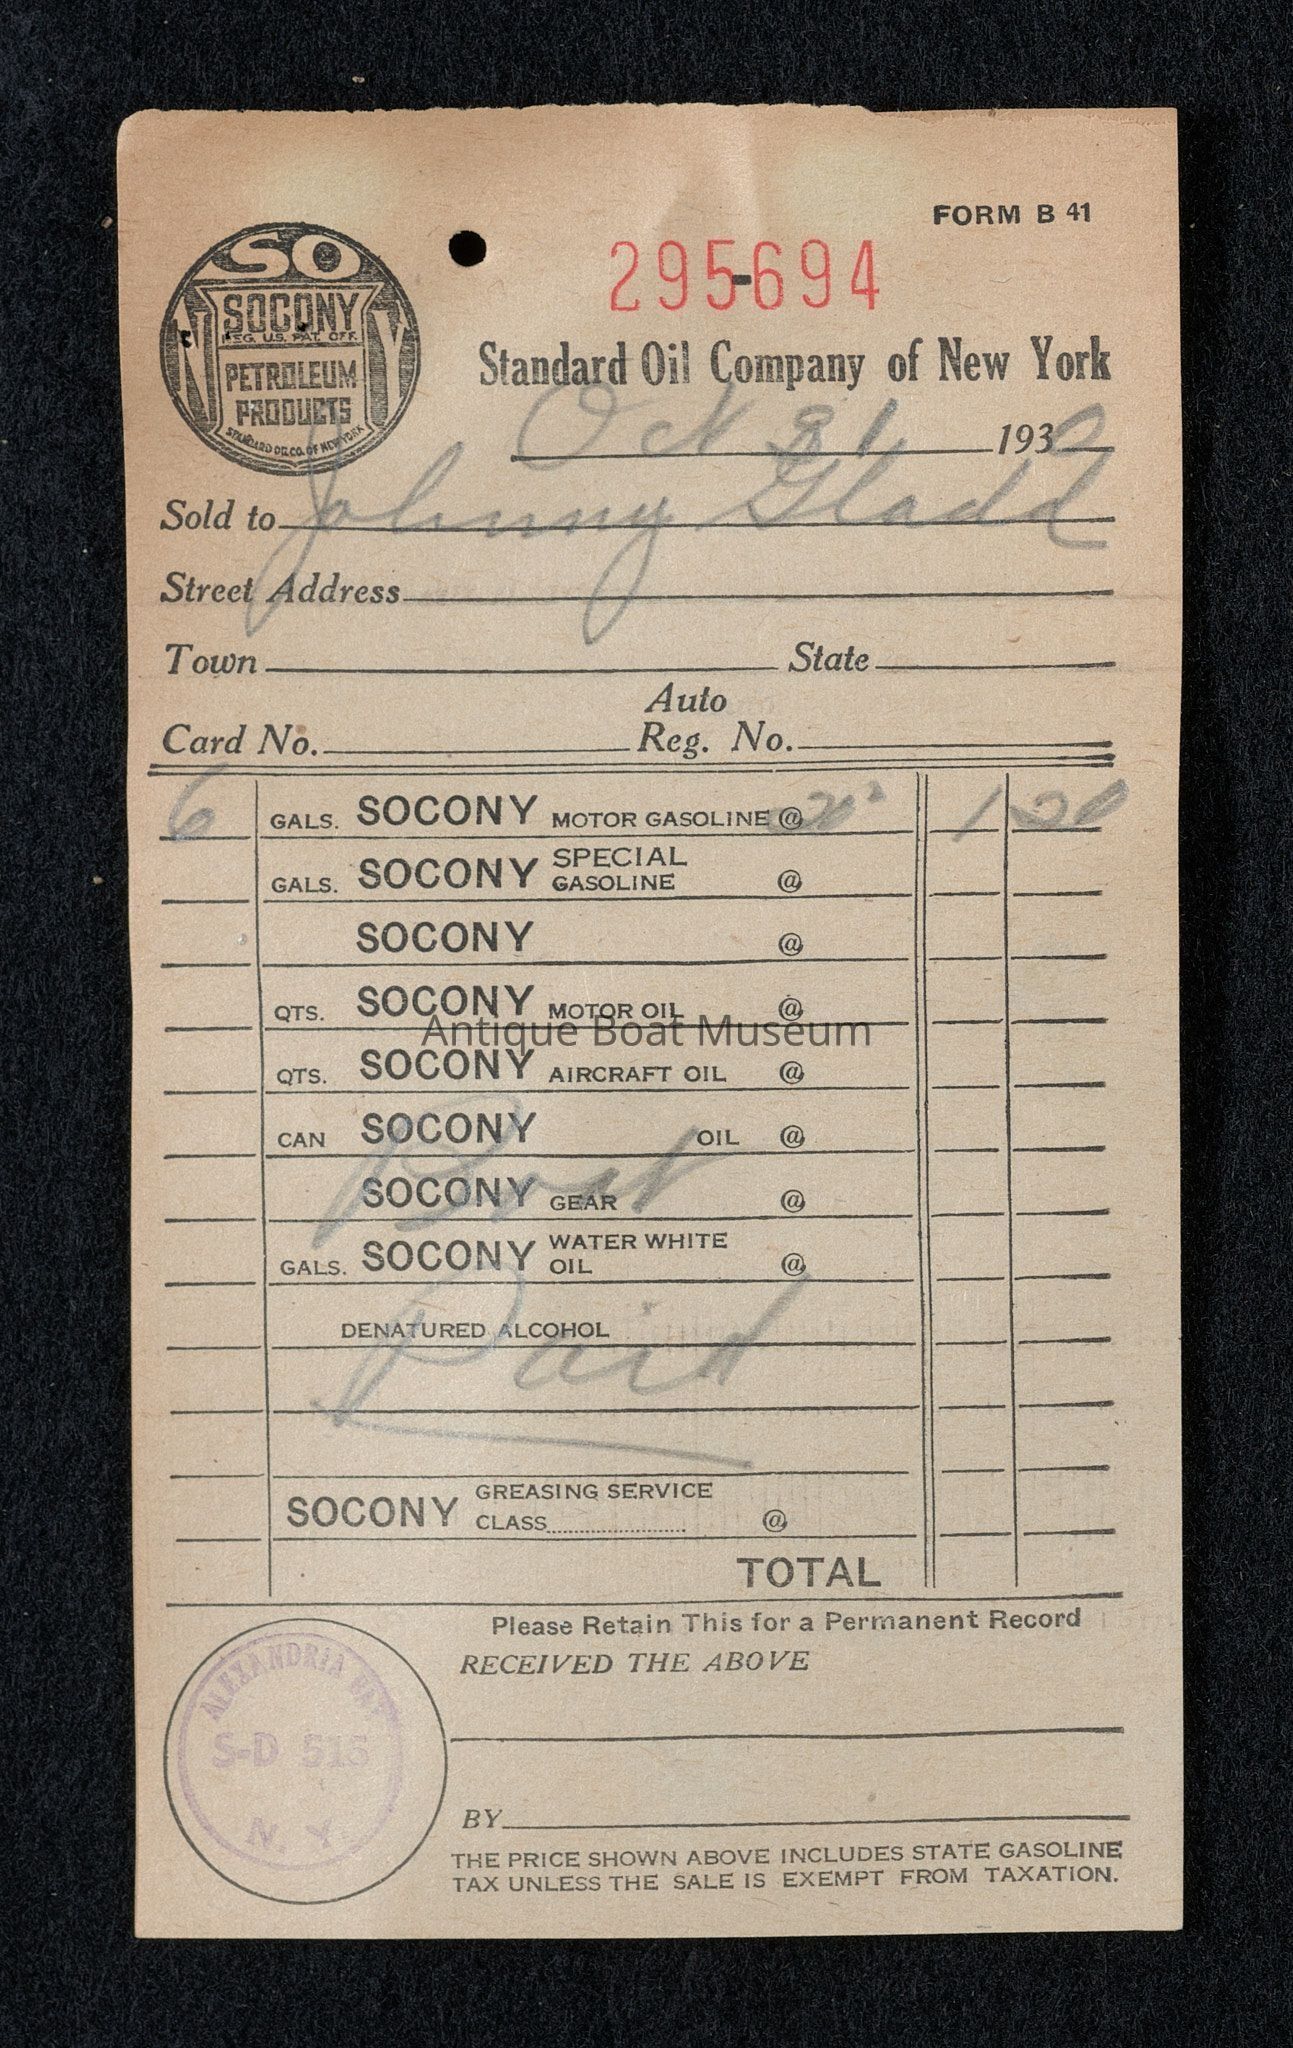 FORM B 41
295-694
SO
NY
SOCONY
REG. U.S. PAT. OFF.
PETROLEUM
PRODUCTS
STANDARD OIL CO. OF NEW YORK
Standard Oil Company of New York
Oct 31 1930
Sold to Johnny Gladd
Street Address
Town State
Auto
Card No. Reg. No.
6 GALS. SOCONY MOTOR GASOLINE @ 20 1 20
GALS. SOCONY SPECIAL GASOLINE @
SOCONY @
QTS. SOCONY MOTOR OIL @
Antique Boat Museum
QTS. SOCONY AIRCRAFT OIL @
CAN SOCONY OIL @
Boat
SOCONY GEAR @
GALS. SOCONY WATER WHITE OIL @
DENATURED ALCOHOL
Paid
SOCONY GREASING SERVICE
CLASS @
TOTAL
Please Retain This for a Permanent Record
RECEIVED THE ABOVE
ALEXANDRIA BAY
S-D 515
N. Y.
BY
THE PRICE SHOWN ABOVE INCLUDES STATE GASOLINE
TAX UNLESS THE SALE IS EXEMPT FROM TAXATION.